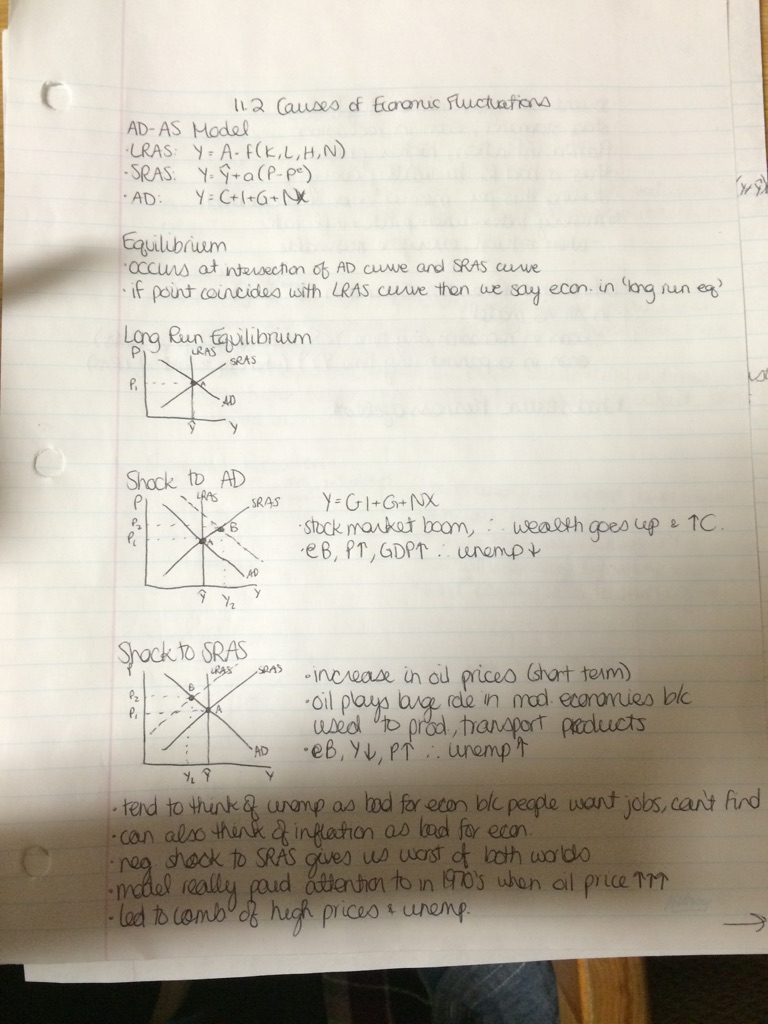 11.2 Causes of Economic Fluctuations
AD-AS Model
· LRAS: Y = A · f(K, L, H, N)
· SRAS: Y = Ŷ + a(P - Pᵉ)
· AD: Y = C + I + G + NX
Equilibrium
· occurs at intersection of AD curve and SRAS curve
· if point coincides with LRAS curve then we say econ. in 'long run eq'
Long Run Equilibrium
P LRAS SRAS
P₁ A
AD
Ŷ Y
Shock to AD
P LRAS SRAS
P₂ B
P₁ A
AD
Ŷ Y₂ Y
Y = C+I+G+NX
· stock market boom, ∴ wealth goes up & ↑C.
· @B, P↑, GDP↑ ∴ unemp↓
Shock to SRAS
LRAS SRAS
P₂ B
P₁ A
AD
Y₂ Ŷ Y
· increase in oil prices (short term)
· oil plays large role in mod. economies b/c
used to prod., transport products
· @B, Y↓, P↑ ∴ unemp↑
· tend to think of unemp as bad for econ b/c people want jobs, can't find
· can also think of inflation as bad for econ.
· neg shock to SRAS gives us worst of both worlds
· model really paid attention to in 1970's when oil price ↑↑↑
· led to comb of high prices & unemp.
→